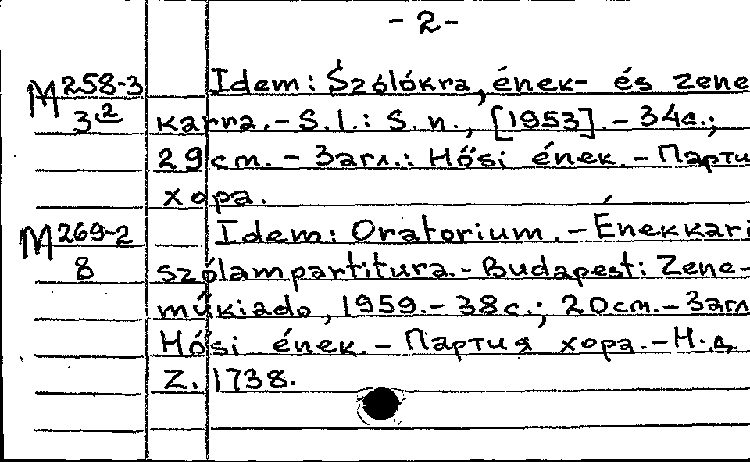 - 2 -
M 258-3 Idem: Szólókra, ének- és zene
3² karra. - S.l.: S.n., [1953]. - 34с.;
29 cm. - Загл.: Hősi ének. - Парти
хора.
M 269-2 Idem: Oratorium. - Énekkari
8 szólampartitura. - Budapest: Zene-
műkiado, 1959. - 38 с.; 20 cm. - Загл
Hősi ének. - Партия хора. - Н.д.
Z. 1738.